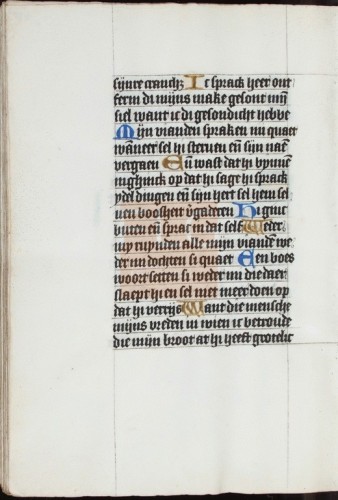 sijnre crancħ Ic sprack heer ont
ferm di mijns make gesont mijn
siel want ic di gesondicht hebbe
Mijn vianden spraken mi quaet
wanneer sel hi sterven en̄ sijn naem
vergaen En̄ wast dat hi bynnen
nighinck op dat hi sage hi sprack
ydel dingen en̄ sijn hert sel hem sel
uen boosheit v̄gaderen Hi ginc
buten en̄ sprac in dat selve Weder
mi runden alle mijn vianden we
der mi dochten si quaet Een boes
woort setten si weder mi die daer
slaept hi en sel niet meer doen op
dat hi verrijs Want die mensche
mijns vreden in wien ic betroude
die mijn broot at hi heeft grotelic